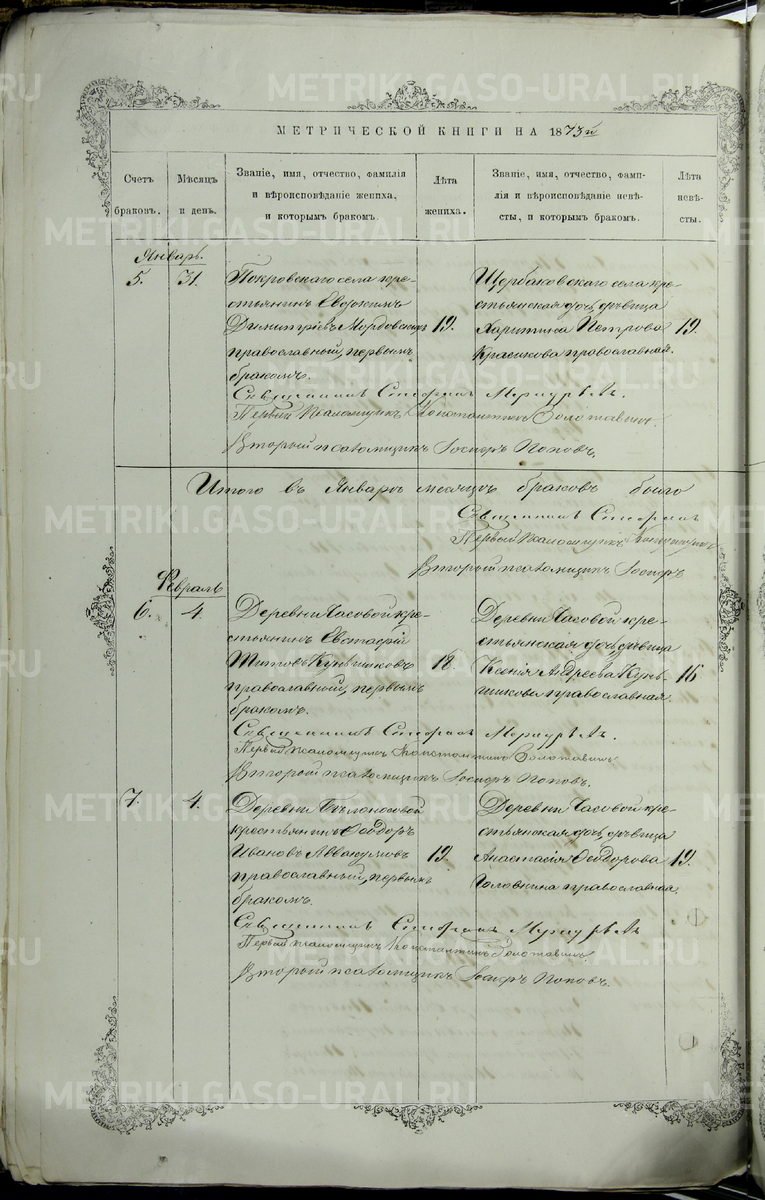 МЕТРИЧЕСКОЙ КНИГИ НА 1873й
Счетъ браковъ.
Мѣсяцъ и день.
Званіе, имя, отчество, фамилія
и вѣроисповѣданіе жениха,
и которымъ бракомъ.
Лѣта жениха.
Званіе, имя, отчество, фами-
лія и вѣроисповѣданіе невѣ-
сты, и которымъ бракомъ.
Лѣта невѣ-
сты.
Январь.
5. 31.
Покровскаго села кре-
стьянинъ Евдокимъ
Димитріевъ Мордовскихъ 19.
православный, первымъ
бракомъ.
Щербаковскаго села кре-
стьянская дочь, дѣвица
Харитина Петрова 19.
Красикова православная.
Священникъ Стефанъ Меркурьевъ.
Первый Псаломщикъ Константинъ Золотавинъ.
Вторый псаломщикъ Іосифъ Поповъ.
Итого въ Январѣ мѣсяцѣ браковъ было
Священникъ Стефанъ
Первый Псаломщикъ Константинъ
Вторый псаломщикъ Іосифъ
Февраль
6. 4.
Деревни Часовой кре-
стьянинъ Евстафій
Титовъ 18.
православный, первымъ
бракомъ.
Деревни Часовой кре-
стьянская дочь, дѣвица
Ксенія Андреева 16
православная
Священникъ Стефанъ Меркурьевъ.
Первый псаломщикъ Константинъ Золотавинъ
Вторый псаломщикъ Іосифъ Поповъ.
7. 4.
Деревни Бѣлоносовой
крестьянинъ Ѳеодоръ
Ивановъ Аввакумовъ 19.
православный, первымъ
бракомъ.
Деревни Часовой кре-
стьянская дочь, дѣвица
Анастасія Ѳеодорова 19.
Головнина православная
Священникъ Стефанъ Меркурьевъ
Первый псаломщикъ Константинъ Золотавинъ.
Вторый псаломщикъ Іосифъ Поповъ.
METRIKI.GASO-URAL.RU